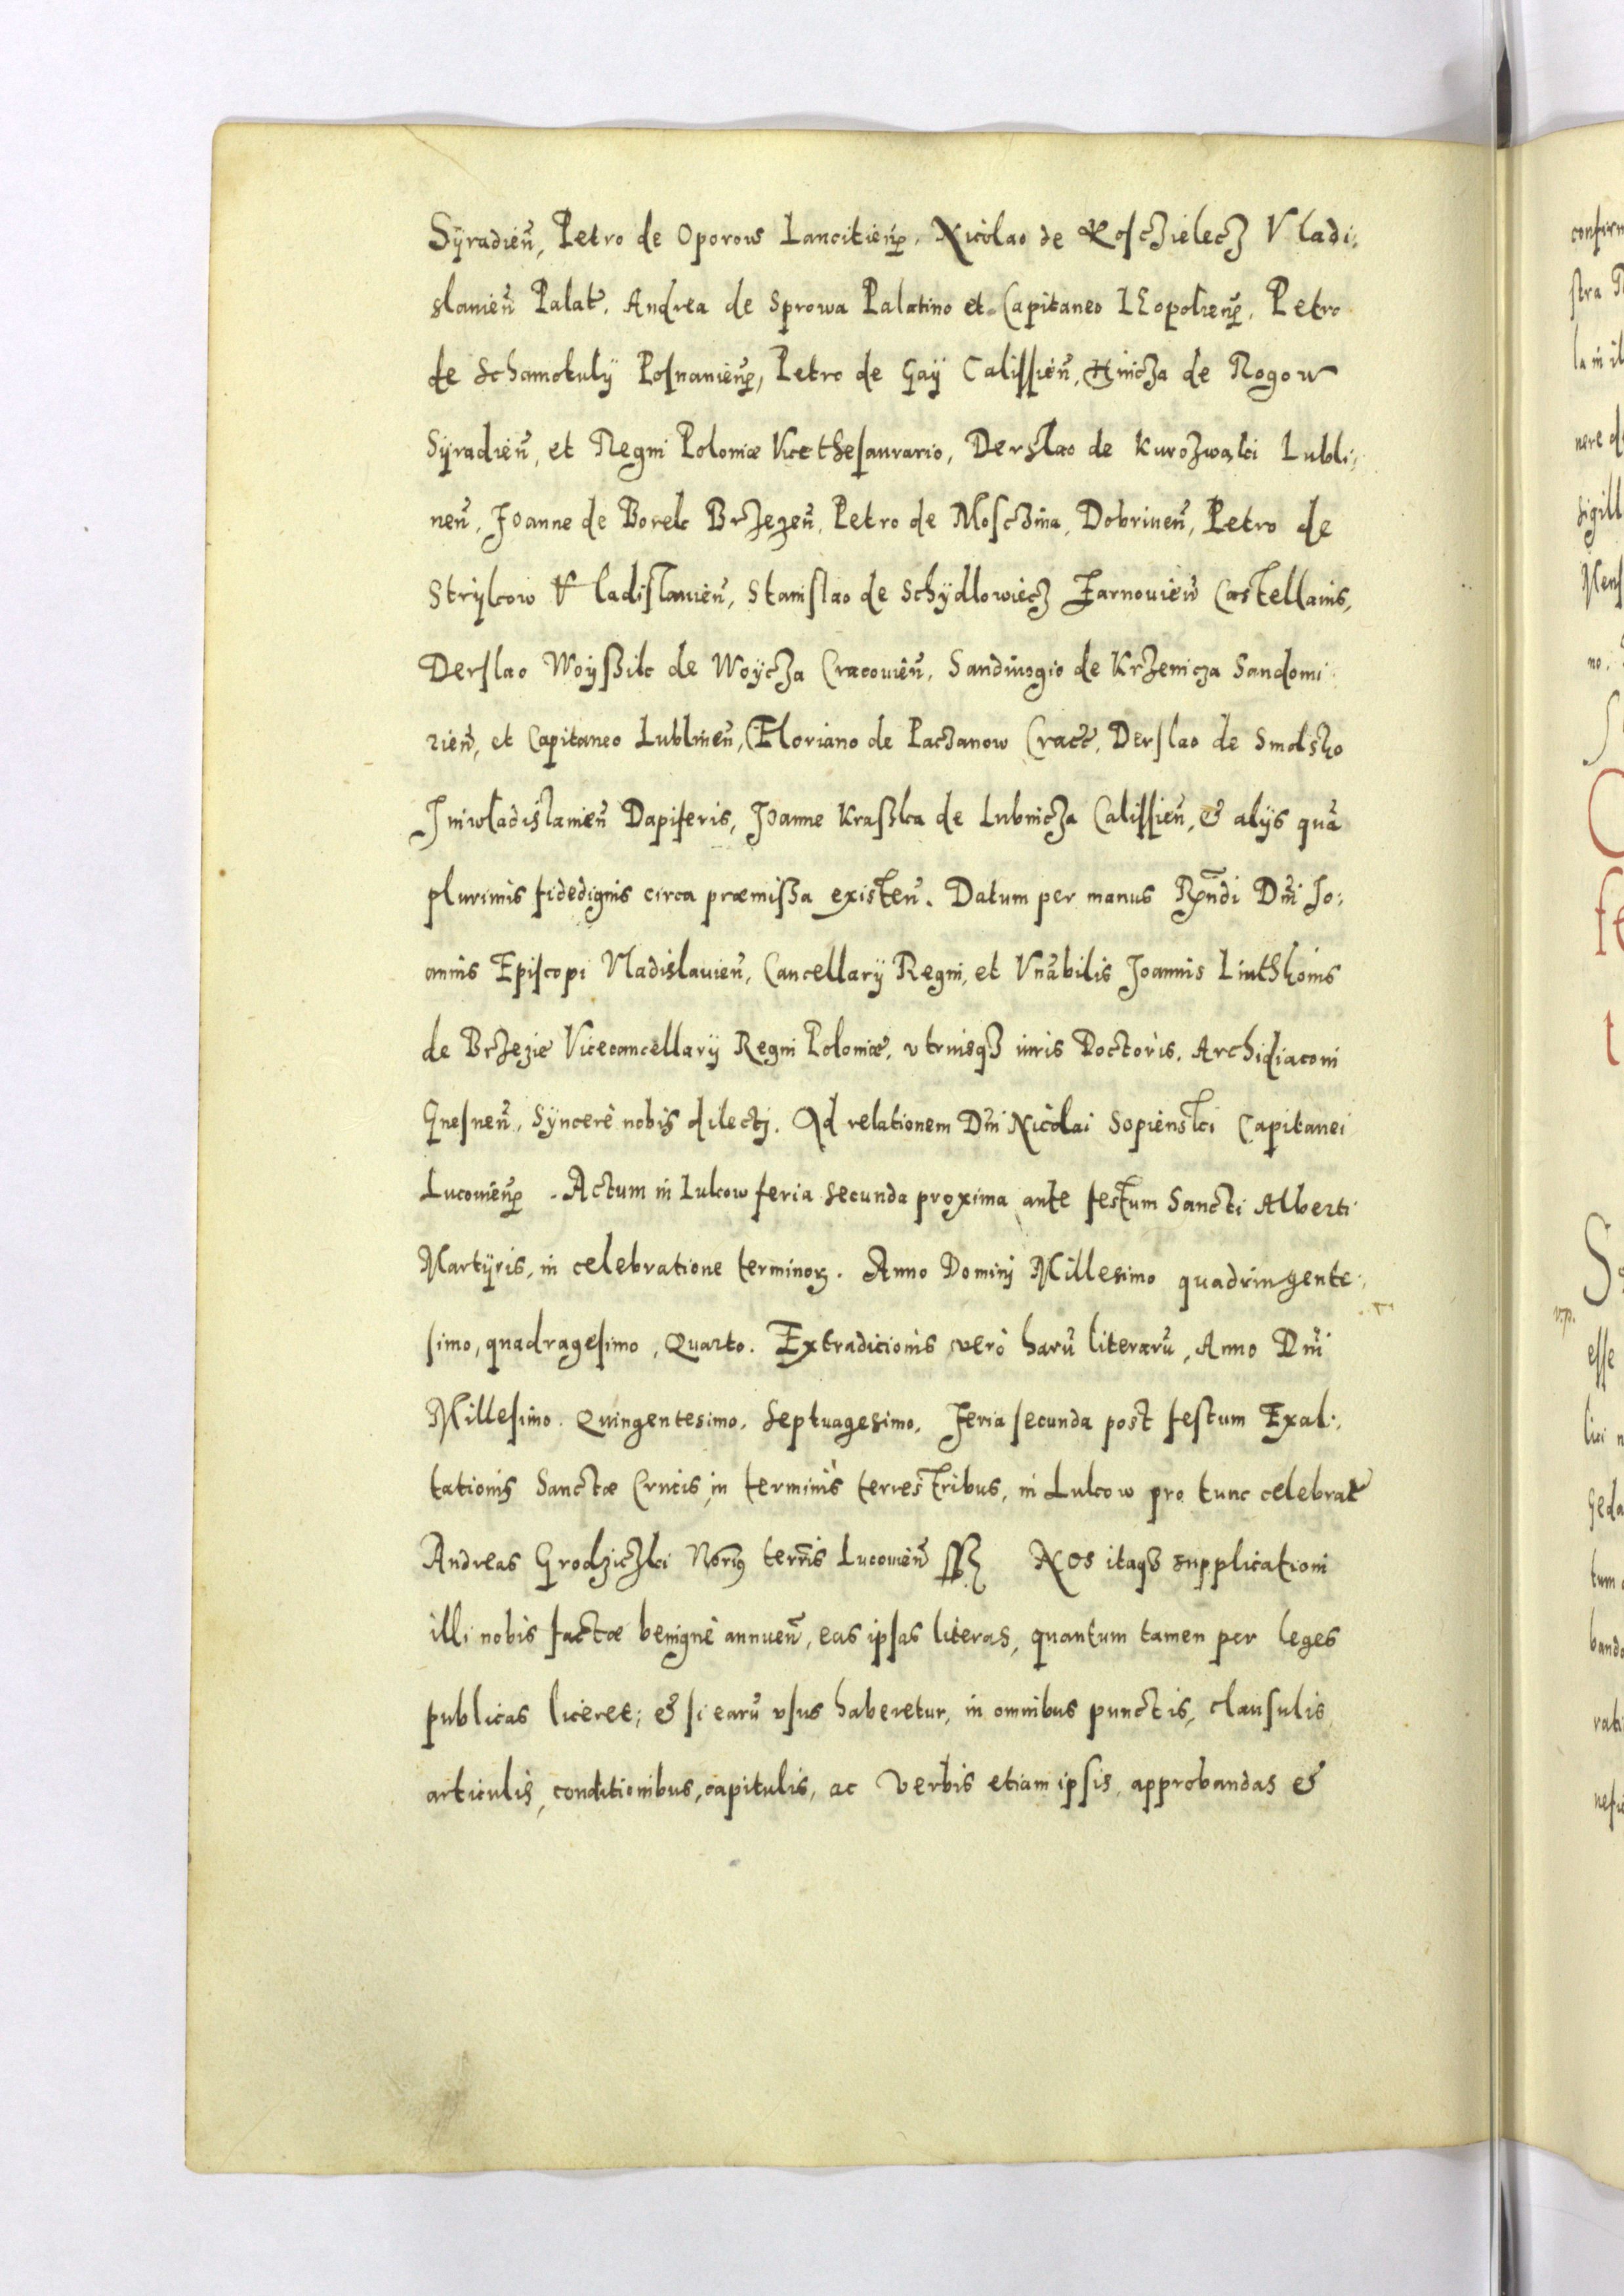 Syradien̄, Petro de Oporow Lancitien̄, Nicolao de Kosczielecz Vladi:
slauien̄ Palat. Andrea de Sprowa Palatino et Capitaneo LEopolien̄, Petro
de Schamotuly Posnanien̄, Petro de Gaÿ Calissien̄, Hincza de Rogow
Sÿradien̄, et Regni Poloniæ Vicethesaurario, Derslao de Kurozwaki Lubli:
nen̄, Joanne de Borek Brzezen̄, Petro de Mosczina, Dobrinen̄, Petro de
Strykow Vladislauien̄, Stanislao de Schÿdlowiecz Zarnouien̄ Castellanis,
Derslao Woÿßik de Woÿcza Cracouien̄, Sandiuogio de Krzenicza Sandomi
rien̄, et Capitaneo Lublinen̄, Floriano de Paczanow Cracc̄, Derslao de Smolsko
Iniwladislauien̄ Dapiferis, Joanne Kraßka de Lubnicza Calissien̄, & alijs quā
plurimis fidedignis circa præmißa existen̄. Datum per manus Rn̄di Dn̄i Jo:
annis Episcopi Vladislauien̄, Cancellarÿ Regni, et Vn̄abilis Joannis Linthkonis
de Brzezie Vicecancellarÿ Regni Poloniæ, vtriusqȝ iuris Doctoris, Archidiaconi
Gnesnen̄, Sÿncerè nobis dilectj. Ad relationem Dn̄i Nicolai Sopienski Capitanei
Lucouien̄. Actum in Lukow feria secunda proxima ante festum Sancti Alberti
Martÿris, in celebratione terminoꝝ. Anno Dominj Millesimo quadringente:
simo, quadragesimo, Quarto. Extradicionis verò harū literarū, Anno Dn̄i
Millesimo. Quingentesimo. Septuagesimo. Feria secunda post festum Exal:
tationis Sanctæ Crucis, in terminis terrestribus, in Lukow pro tunc celebrat
Andreas Grodziczki Nōrius terrīs Lucouien̄ ssz Nos itaqȝ supplicationi
illi nobis factæ benignè annuen̄, eas ipsas literas, quantum tamen per leges
publicas liceret; & si earū vsus haberetur, in omnibus punctis, clausulis
articulis, conditionibus, capitulis, ac verbis etiam ipsis, approbandas &